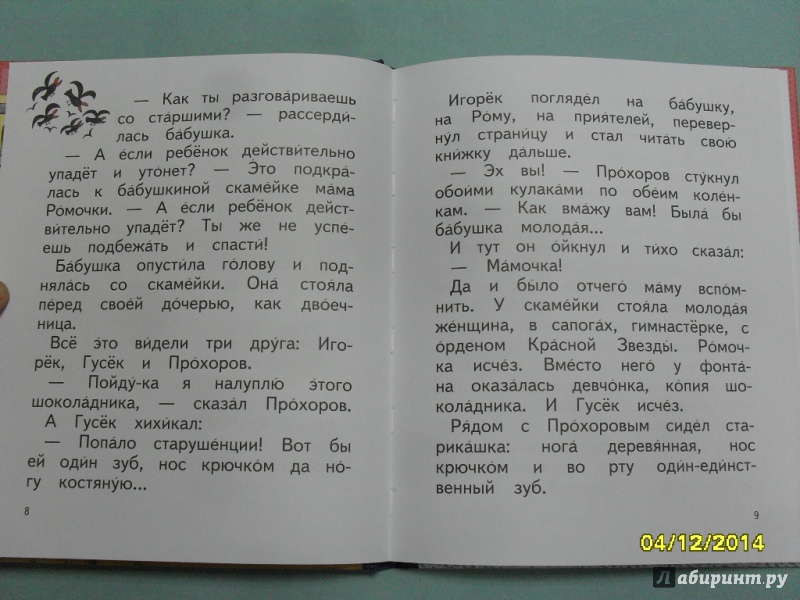 — Как ты разгова́риваешь
со ста́ршими? — рассерди́-
лась ба́бушка.
— А е́сли ребёнок действи́тельно
упадёт и уто́нет? — Это подкра́-
лась к ба́бушкиной скаме́йке ма́ма
Ро́мочки. — А е́сли ребёнок дейст-
ви́тельно упадёт? Ты же не успе́-
ешь подбежа́ть и спасти́!
Ба́бушка опусти́ла го́лову и под-
няла́сь со скаме́йки. Она́ стоя́ла
пе́ред свое́й до́черью, как двое́ч-
ница.
Всё э́то ви́дели три дру́га: Иго-
рёк, Гусёк и Про́хоров.
— Пойду́-ка я налуплю́ э́того
шокола́дника, — сказа́л Про́хоров.
А Гусёк хихи́кал:
— Попа́ло стару́шенции! Вот бы
ей оди́н зуб, нос крючко́м да но́-
гу костяну́ю...
8
Игорёк погляде́л на ба́бушку,
на Ро́му, на прия́телей, перевер-
ну́л страни́цу и стал чита́ть свою́
кни́жку да́льше.
— Эх вы! — Про́хоров сту́кнул
обо́ими кулака́ми по обе́им коле́н-
кам. — Как вма́жу вам! Была́ бы
ба́бушка молода́я...
И тут он о́йкнул и ти́хо сказа́л:
— Ма́мочка!
Да и бы́ло отчего́ ма́му вспо́м-
нить. У скаме́йки стоя́ла молода́я
же́нщина, в сапога́х, гимнастёрке, с
о́рденом Кра́сной Звезды́. Ро́моч-
ка исче́з. Вме́сто него́ у фонта́-
на оказа́лась девчо́нка, ко́пия шо-
кола́дника. И Гусёк исче́з.
Ря́дом с Про́хоровым сиде́л ста-
рика́шка: нога́ деревя́нная, нос
крючко́м и во рту оди́н-еди́нст-
венный зуб.
9
04/12/2014
Лабиринт.ру